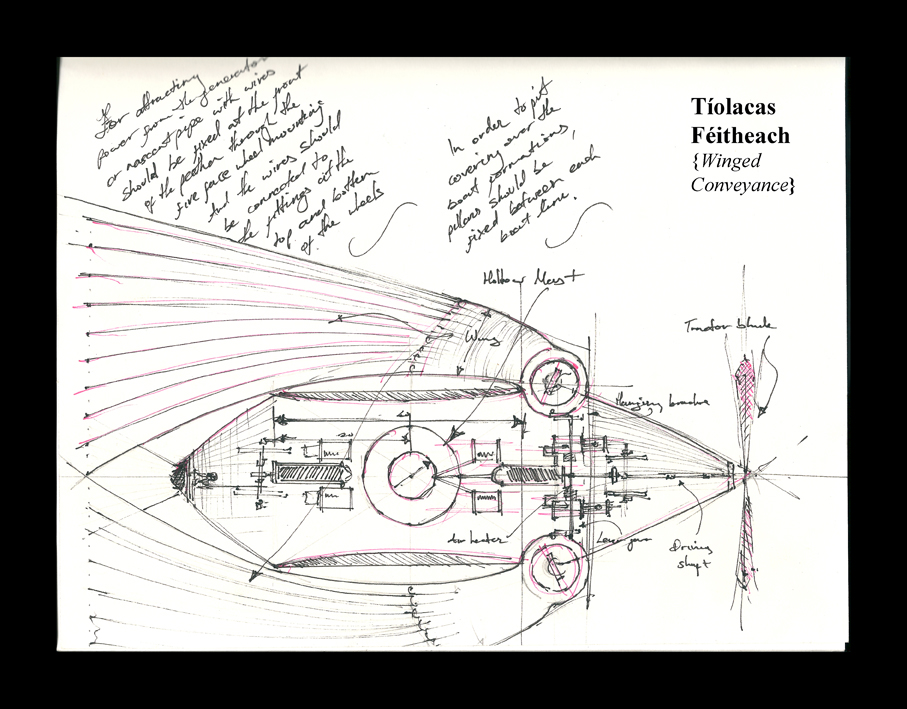 For attracting
power from the generator
or nascent pipe with wires
should be fixed at the front
of the feather through the
five face wheel mounting
And the wires should
be connected to
the fittings at the
top and bottom
of the wheels
In order to put
covering over the
boat formations,
pillars should be
fixed between each
boat line.
Tíolacas
Féitheach
{Winged
Conveyance}
Hollow Mast
Wing
Tractor blade
Driving
shaft